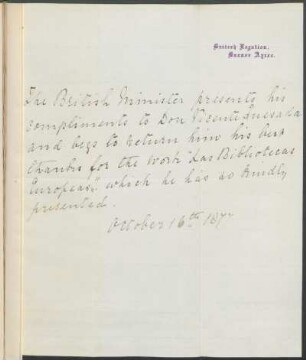 British Legation.
Buenos Ayres.
The British Minister presents his
compliments to Don Vicente Quesada
and begs to return him his best
thanks for the work "Las Bibliotecas
Europeas" which he has so kindly
presented.
October 16th 1877